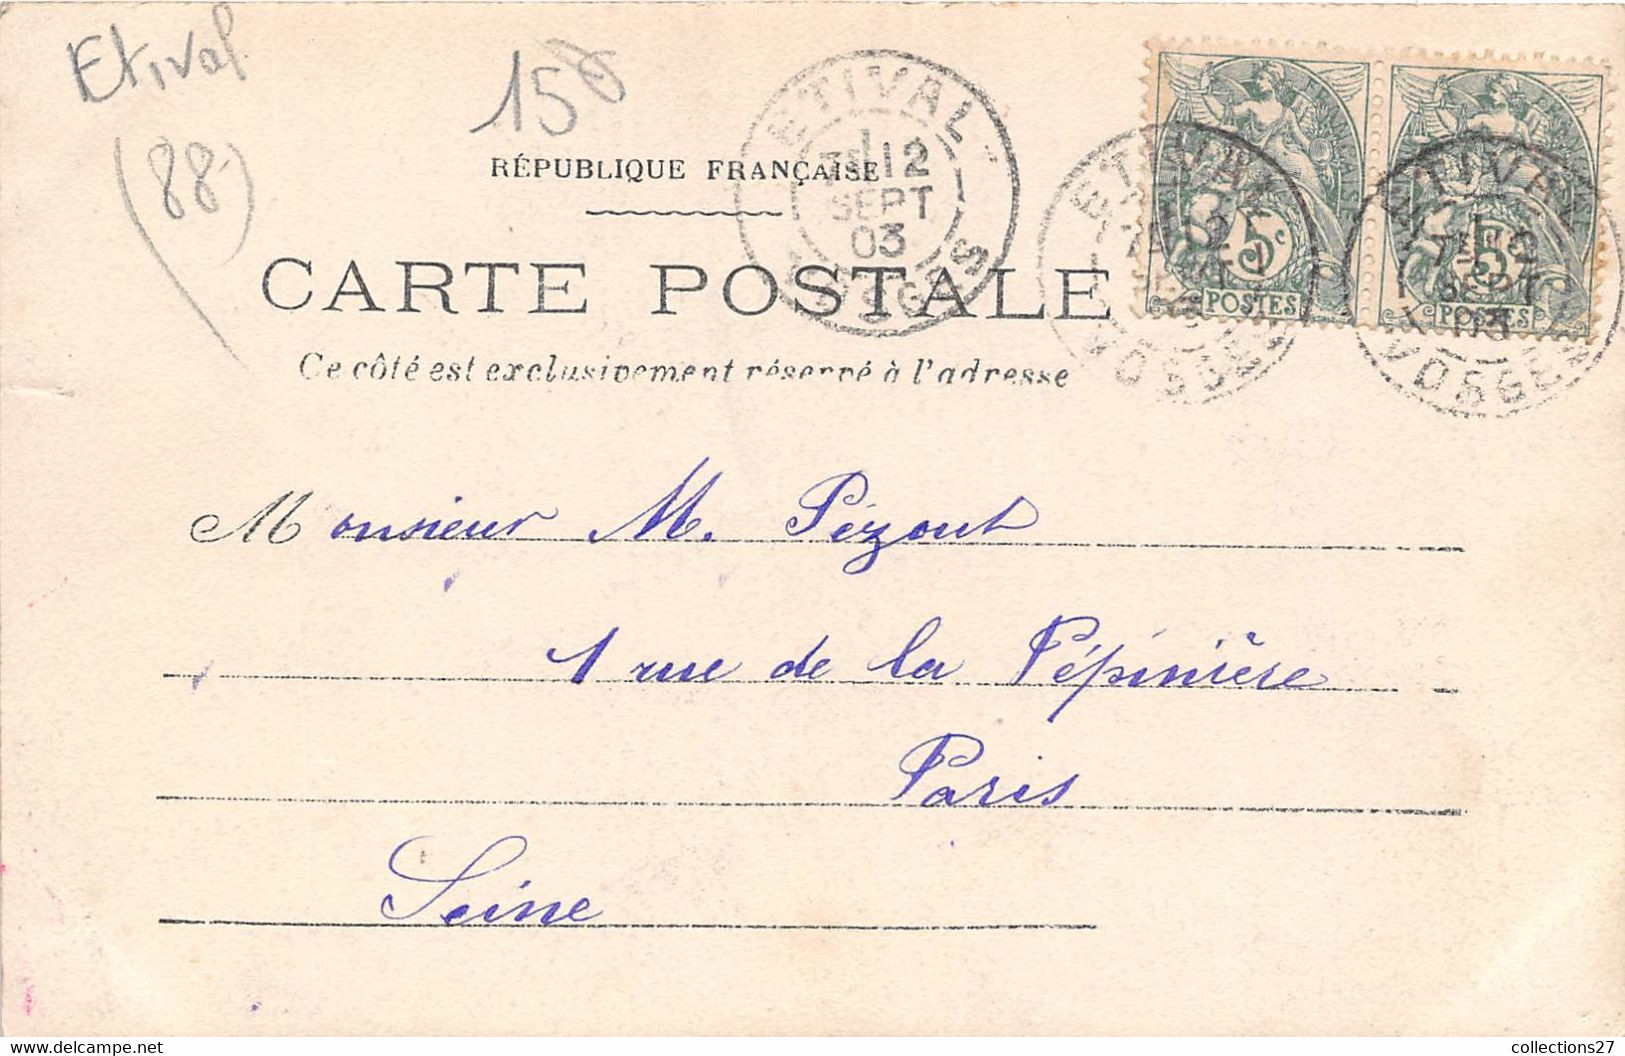 Etival
(88)
150
RÉPUBLIQUE FRANÇAISE
CARTE POSTALE
Ce côté est exclusivement réservé à l'adresse
ETIVAL
12
SEPT
03
VOSGES
ETIVAL
VOSGES
5c
POSTES
ETIVAL
SEPT
03
VOSGES
5
POSTES
Monsieur M. Pézout
1 rue de la Pépinière
Paris
Seine
collections27